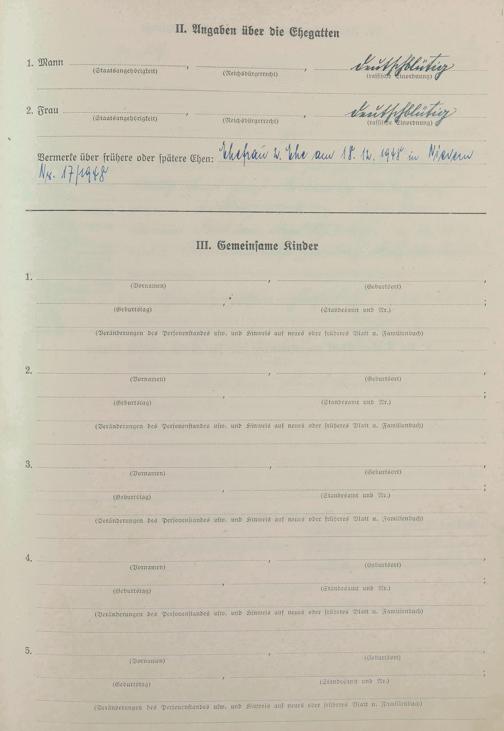 II. Angaben über die Ehegatten
1. Mann , , deutschblütig
(Staatsangehörigkeit) (Reichsbürgerrecht) (rassische Einordnung)
2. Frau , , deutschblütig
(Staatsangehörigkeit) (Reichsbürgerrecht) (rassische Einordnung)
Vermerke über frühere oder spätere Ehen: Ehefrau 2. Ehe am 18.12.1948 in
Nr. 17/1948
III. Gemeinsame Kinder
1. , ,
(Vornamen) (Geburtsort)
, ;
(Geburtstag) (Standesamt und Nr.)
(Veränderungen des Personenstandes usw. und Hinweis auf neues oder früheres Blatt u. Familienbuch)
2. , ,
(Vornamen) (Geburtsort)
, ;
(Geburtstag) (Standesamt und Nr.)
(Veränderungen des Personenstandes usw. und Hinweis auf neues oder früheres Blatt u. Familienbuch)
3. , ,
(Vornamen) (Geburtsort)
, ;
(Geburtstag) (Standesamt und Nr.)
(Veränderungen des Personenstandes usw. und Hinweis auf neues oder früheres Blatt u. Familienbuch)
4. , ,
(Vornamen) (Geburtsort)
, ;
(Geburtstag) (Standesamt und Nr.)
(Veränderungen des Personenstandes usw. und Hinweis auf neues oder früheres Blatt u. Familienbuch)
5. , ,
(Vornamen) (Geburtsort)
, ;
(Geburtstag) (Standesamt und Nr.)
(Veränderungen des Personenstandes usw. und Hinweis auf neues oder früheres Blatt u. Familienbuch)